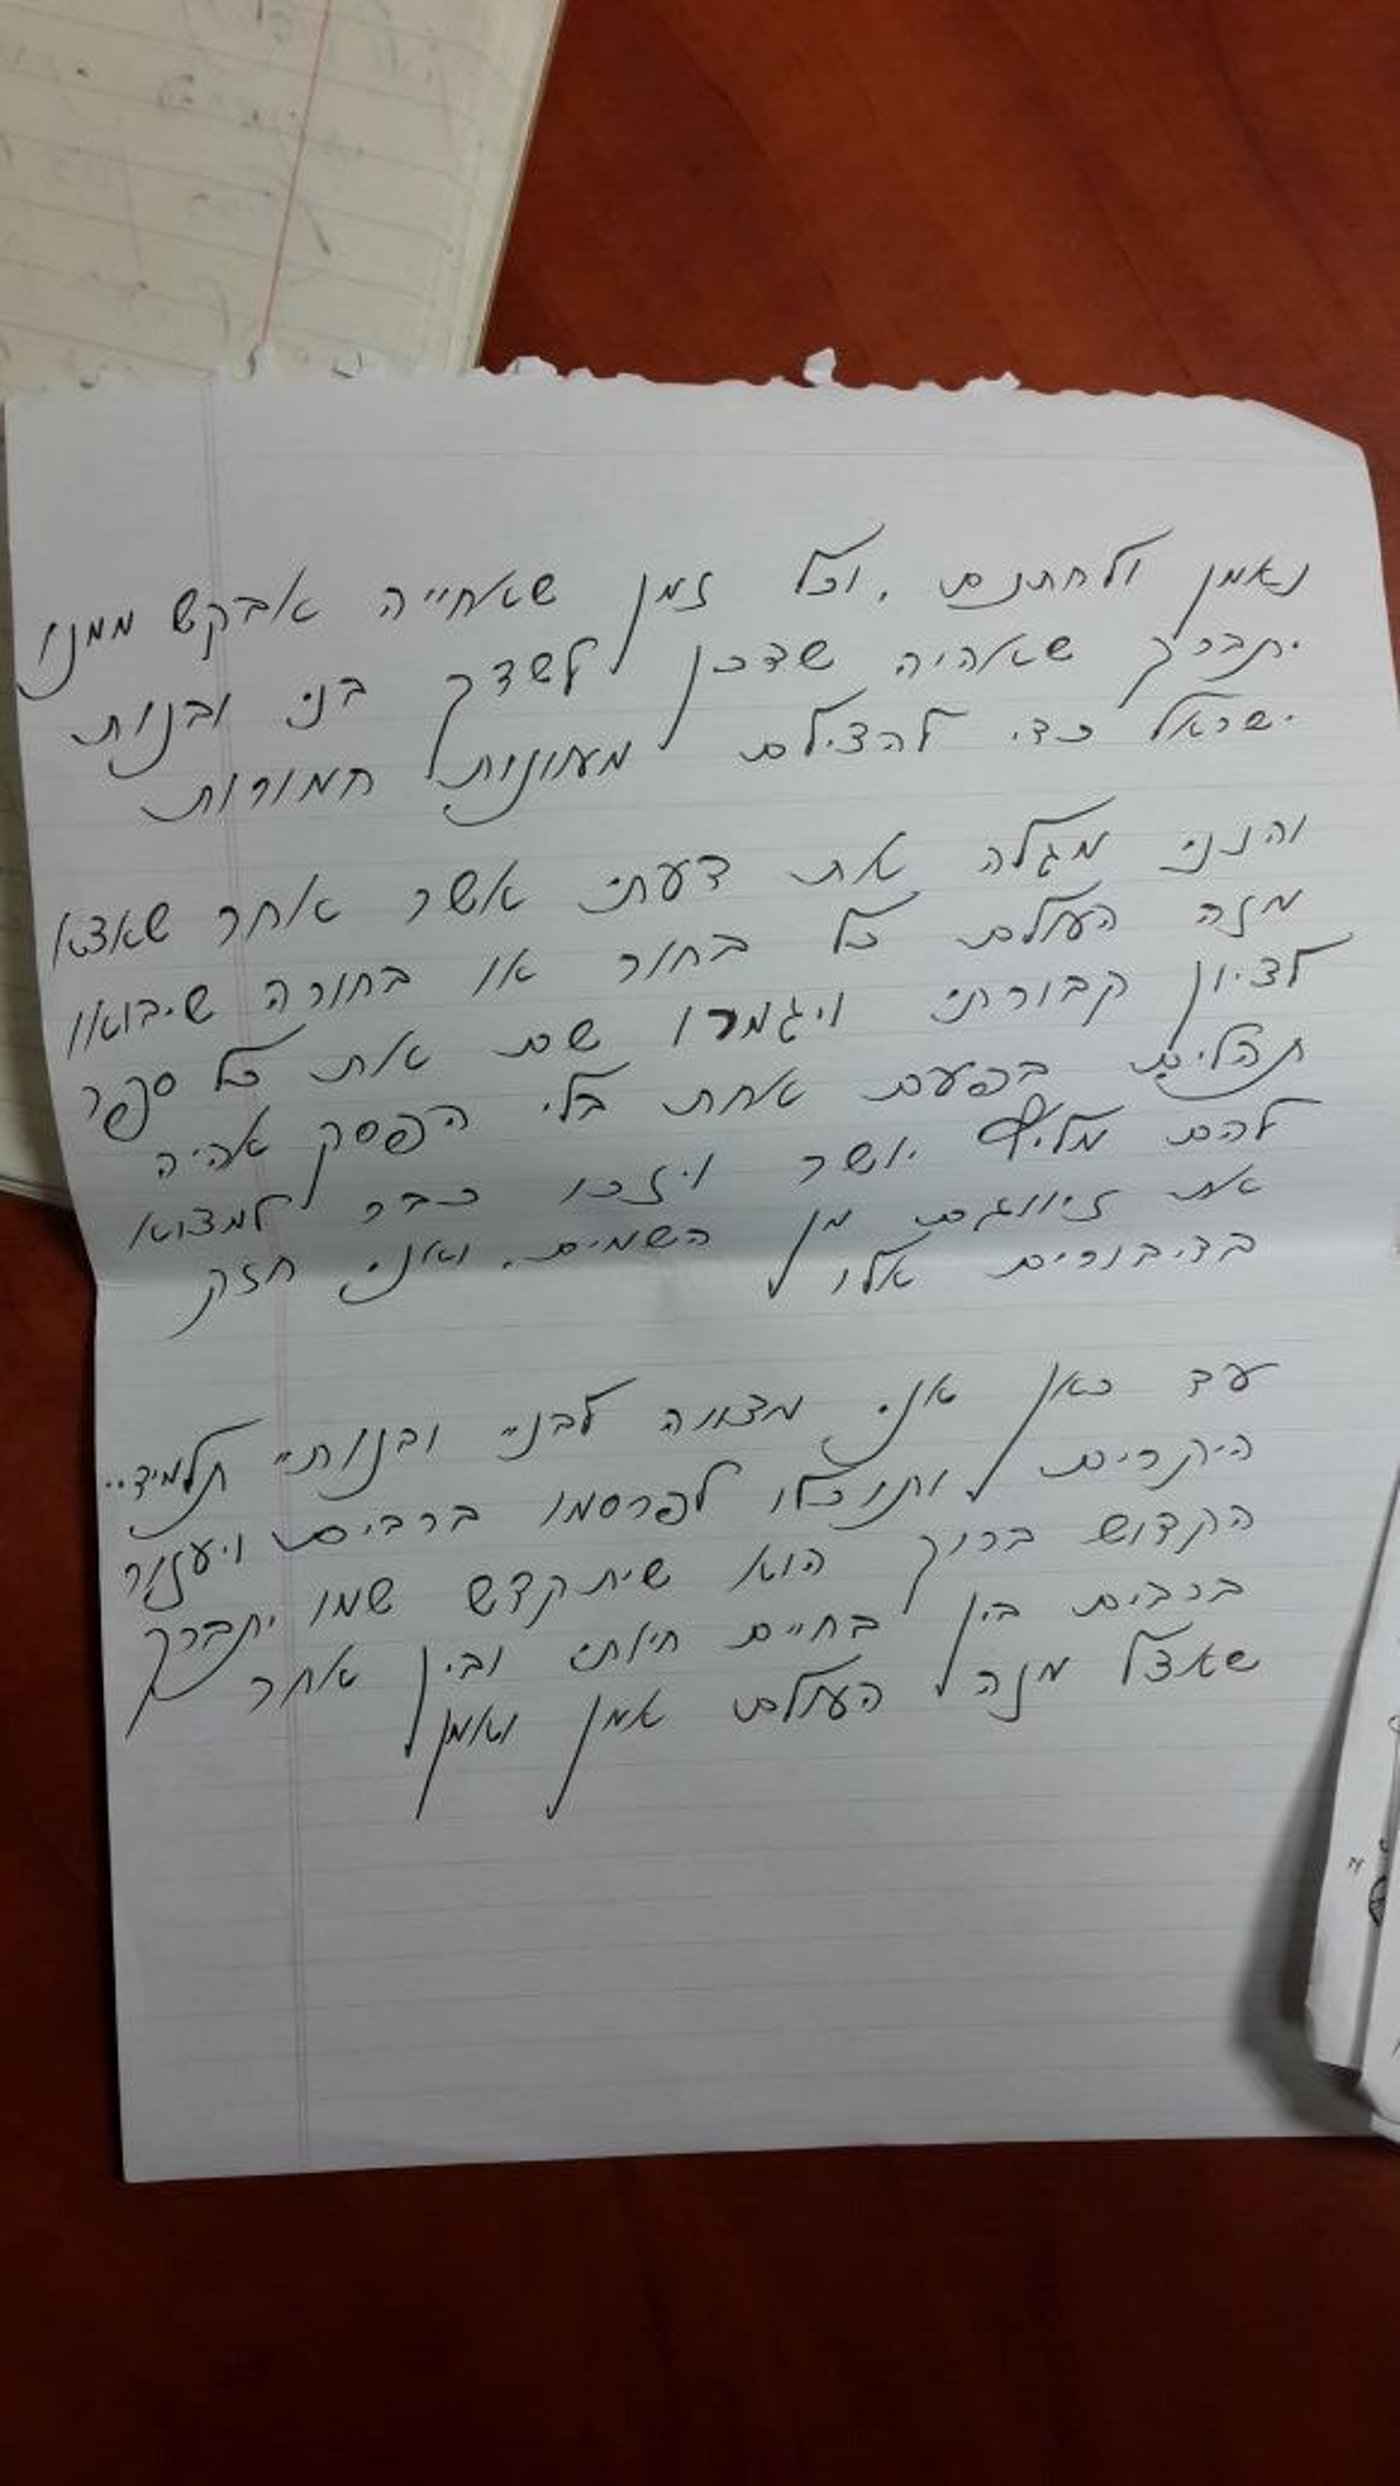 נאמן ולחתנם. וכל זמן שאחייה אבקש ממנו
יתברך שאהיה שדכן לשדך בני ובנות
ישראל כדי להצילם מעוונות חמורות
והנני מגלה את דעתי אשר אחר שאצא
מזה העולם כל בחור או בחורה שיבואו
לציון קבורתי ויגמרו שם את כל ספר
תהלים בפעם אחת בלי הפסק אהיה
להם מליץ יושר ויזכו כבר למצוא
את זיווגם מן השמים. ואני חזק
בדיבורים אלו
עד כאן אני מצווה לבניי ובנותיי תלמיד..
היקרים ותוכלו לפרסמו ברבים ויעזור
הקדוש ברוך הוא שיתקדש שמו יתברך
ברבים בין בחיים חיותי ובין אחר
שאצא מזה העולם אמן ואמן